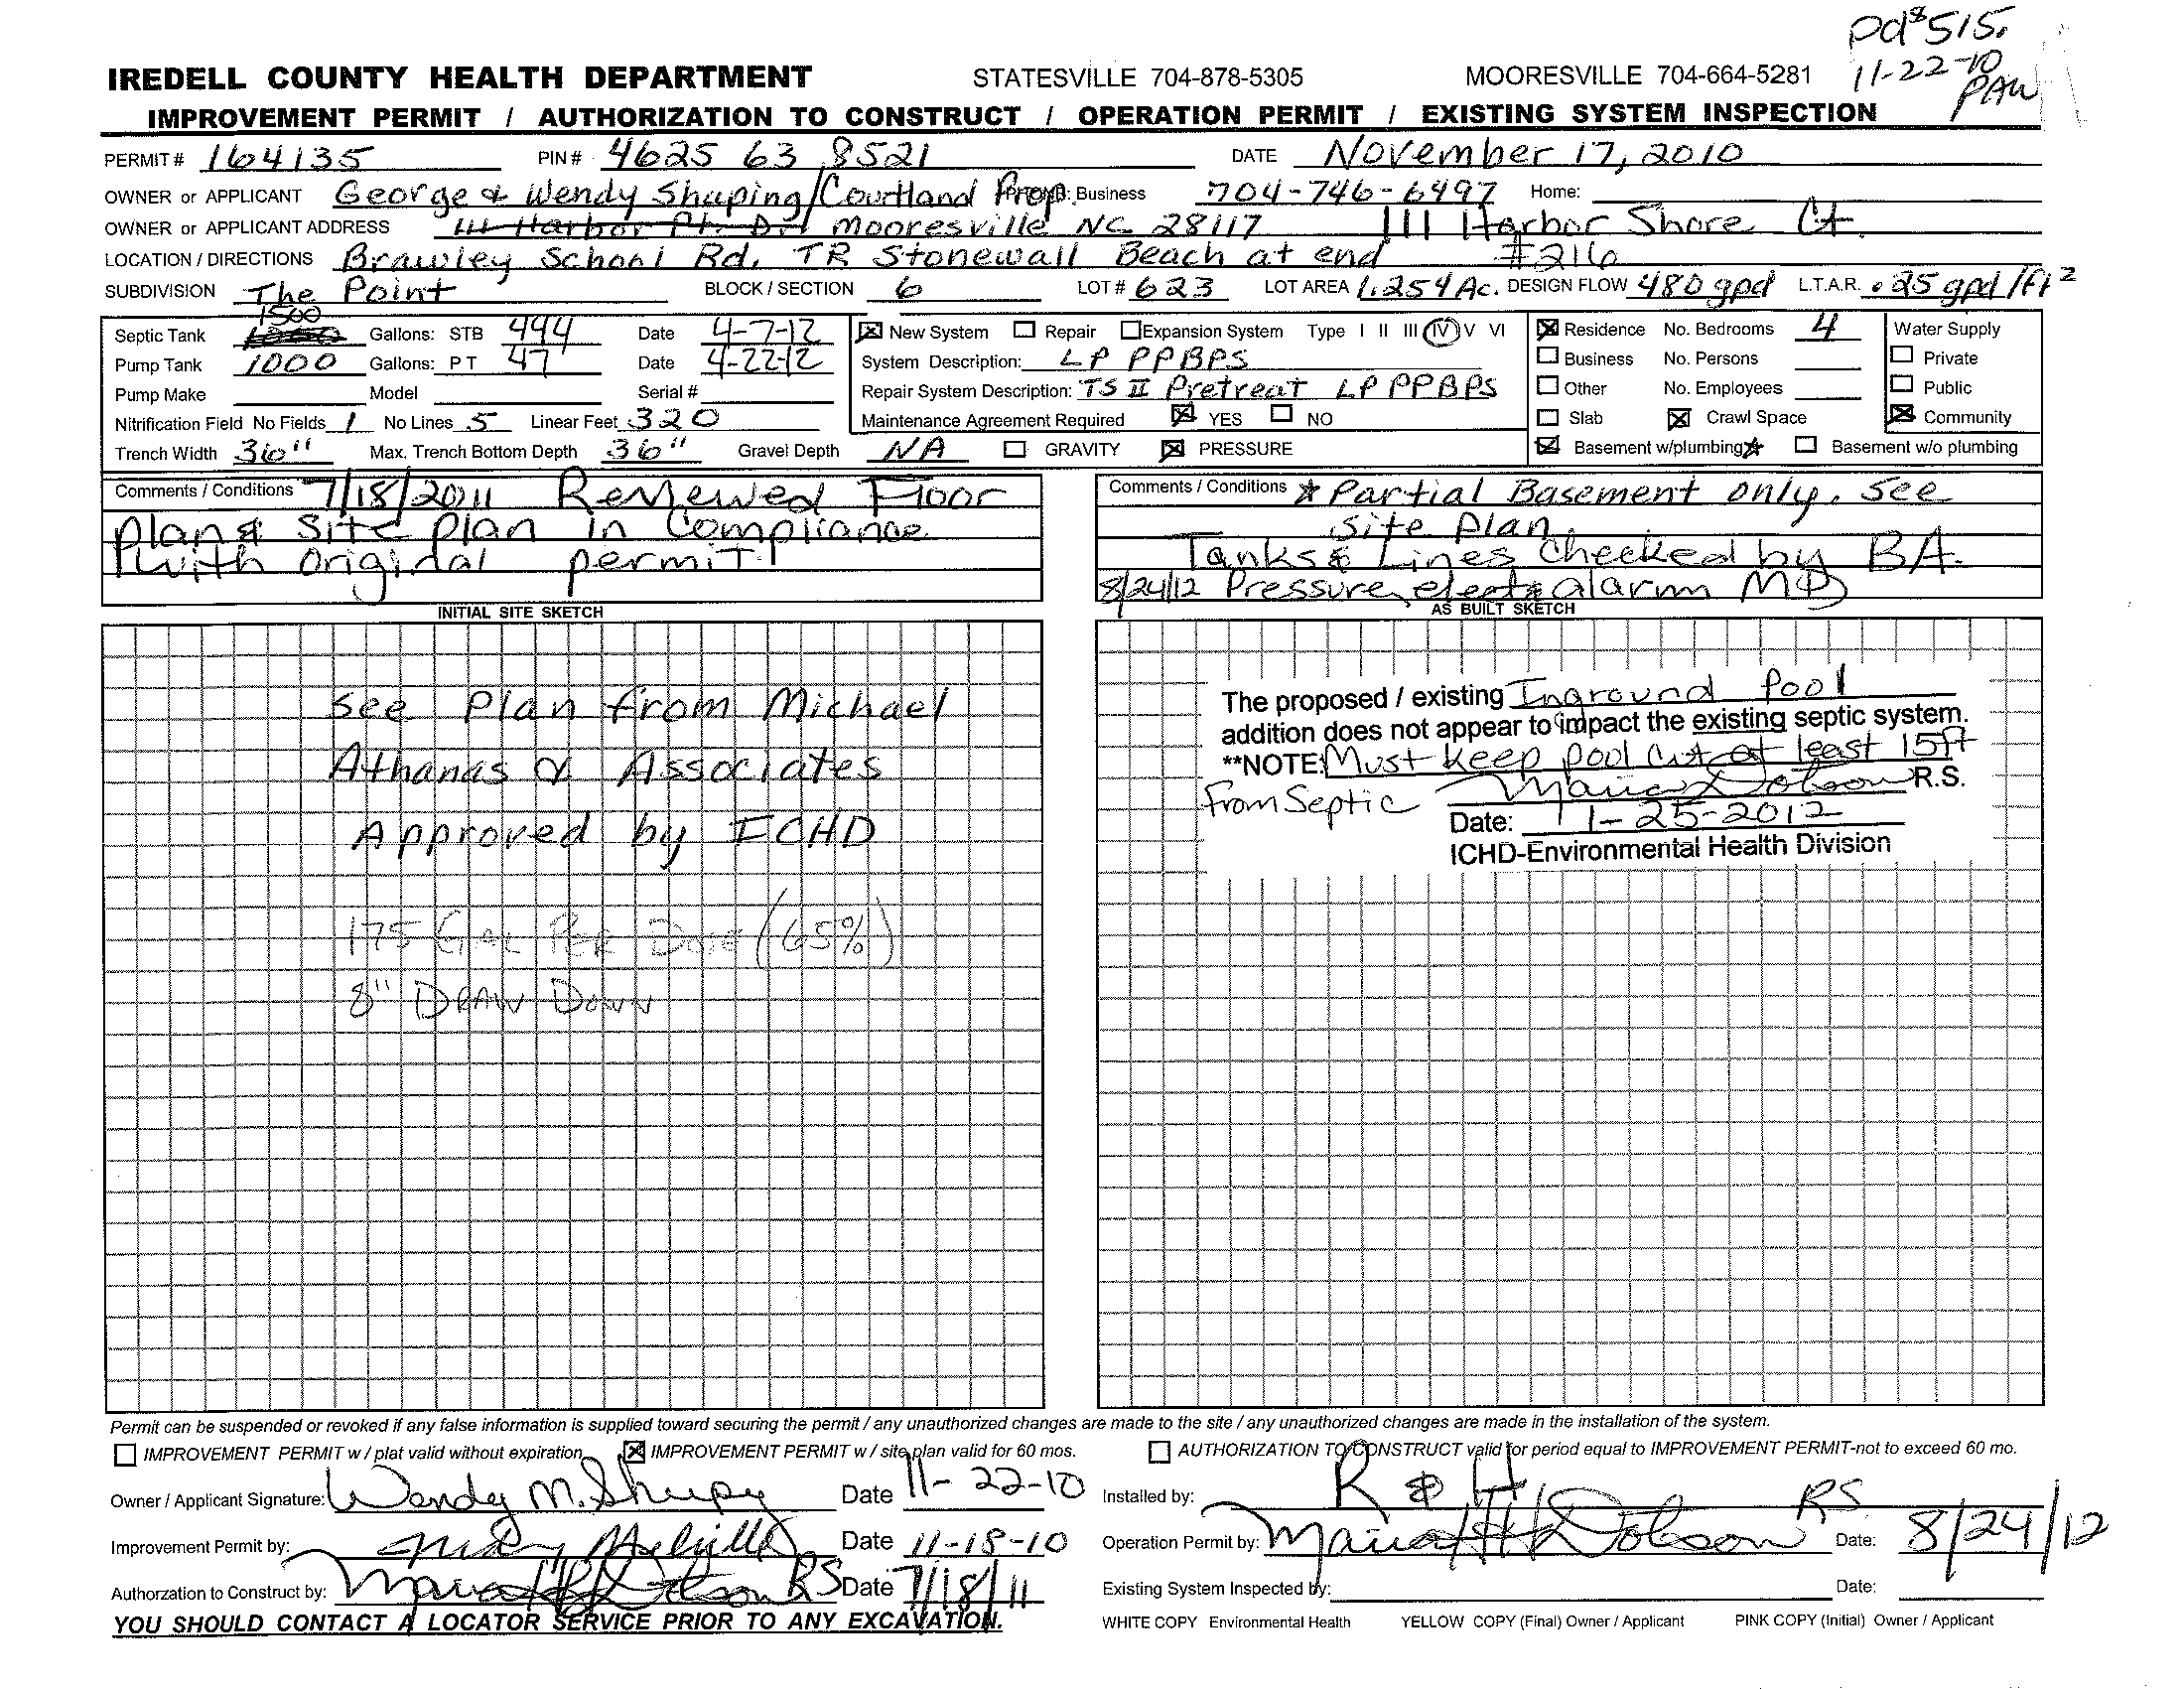 Pd $515.
11-22-10
PAW
IREDELL COUNTY HEALTH DEPARTMENT STATESVILLE 704-878-5305 MOORESVILLE 704-664-5281
IMPROVEMENT PERMIT / AUTHORIZATION TO CONSTRUCT / OPERATION PERMIT / EXISTING SYSTEM INSPECTION
PERMIT # 164135 PIN # 4625 63 8521 DATE November 17, 2010
OWNER or APPLICANT George & Wendy Shuping/Courtland Prop. Business 704-746-6497 Home:
OWNER or APPLICANT ADDRESS 111 Harbor Pt. Dr. Mooresville NC 28117 111 Harbor Shore Ct
LOCATION / DIRECTIONS Brawley School Rd. TR Stonewall Beach at end #216
SUBDIVISION The Point BLOCK / SECTION 6 LOT # 623 LOT AREA 1.254 Ac. DESIGN FLOW 480 gpd L.T.A.R. .25 gpd/ft2
Septic Tank 1500 Gallons: STB 494 Date 4-7-12
Pump Tank 1000 Gallons: PT 47 Date 4-22-12
Pump Make Model Serial #
Nitrification Field No Fields 1 No Lines 5 Linear Feet 320
Trench Width 36" Max. Trench Bottom Depth 36" Gravel Depth NA GRAVITY PRESSURE
New System Repair Expansion System Type I II III IV V VI
System Description: LP PPBPS
Repair System Description: TS II Pretreat LP PPBPS
Maintenance Agreement Required YES NO
Residence No. Bedrooms 4
Business No. Persons
Other No. Employees
Slab Crawl Space
Basement w/plumbing Basement w/o plumbing
Water Supply
Private
Public
Community
Comments / Conditions 7/18/2011 Reviewed Floor
plan & Site plan in Compliance
with original permit!
Comments / Conditions * Partial Basement only. See
Site plan.
Tanks & Lines Checked by BA.
8/24/12 Pressure, elect & alarm MD
INITIAL SITE SKETCH
See Plan from Michael
Athanas & Associates
Approved by ICHD
175 GAL PER DOSE (65%)
8" DRAW DOWN
AS BUILT SKETCH
The proposed / existing Inground Pool
addition does not appear to impact the existing septic system.
**NOTE: Must keep pool cut at least 15ft
From Septic Maria Dotson R.S.
Date: 1-25-2012
ICHD-Environmental Health Division
Permit can be suspended or revoked if any false information is supplied toward securing the permit / any unauthorized changes are made to the site / any unauthorized changes are made in the installation of the system.
IMPROVEMENT PERMIT w / plat valid without expiration IMPROVEMENT PERMIT w / site plan valid for 60 mos. AUTHORIZATION TO CONSTRUCT valid for period equal to IMPROVEMENT PERMIT-not to exceed 60 mo.
Owner / Applicant Signature: Wendy M. Shuping Date 11-22-10
Installed by: R & H
Improvement Permit by: Date 11-18-10
Operation Permit by: Maria Dotson RS Date: 8/24/12
Authorzation to Construct by: Maria Dotson RS Date 7/18/11
Existing System Inspected by: Date:
YOU SHOULD CONTACT A LOCATOR SERVICE PRIOR TO ANY EXCAVATION.
WHITE COPY Environmental Health YELLOW COPY (Final) Owner / Applicant PINK COPY (Initial) Owner / Applicant